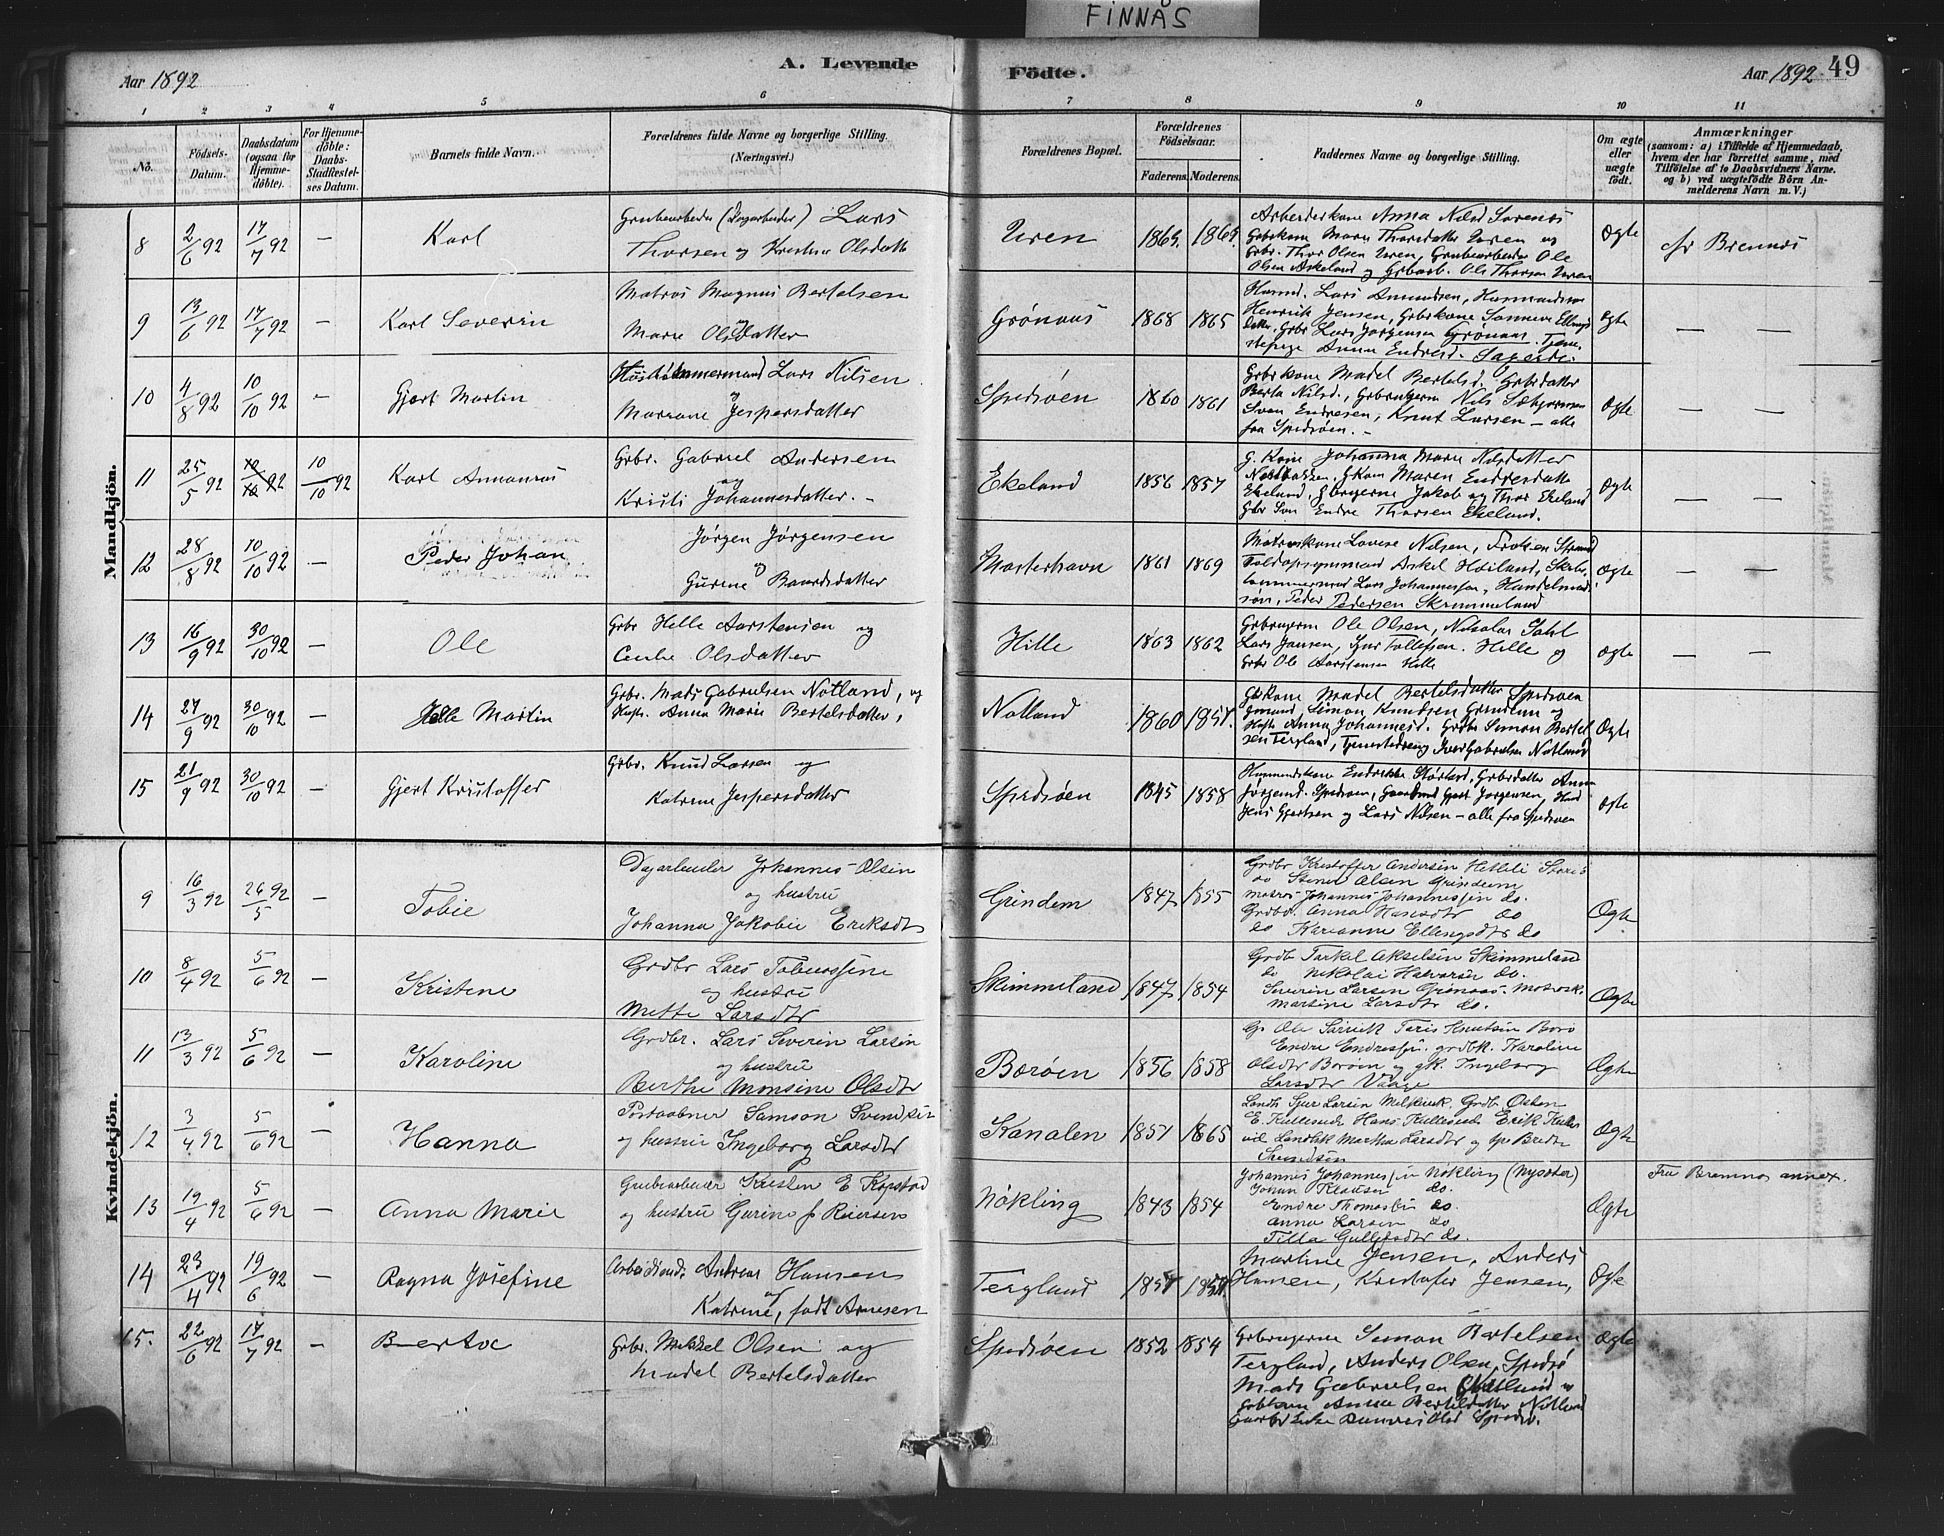 FINNÅS
Aar 1892
A. Levende
Födte.
Aar 1892.
49
1 2 3 4 5 6 7 8 9 10 11
No.
Födsels-
Datum.
Daabsdatum
(ogsaa for
Hjemme-
döbte).
For Hjemme-
döbte:
Daabs-
Stadfæstel-
ses Datum.
Barnets fulde Navn.
Forældrenes fulde Navne og borgerlige Stilling.
(Næringsvei.)
Forældrenes Bopæl.
Forældrenes
Födselsaar.
Faderens. Moderens.
Faddernes Navne og borgerlige Stilling.
Om ægte
eller
uægte
født.
Anmærkninger
(saasom: a) i Tilfælde af Hjemmedaab,
hvem der har forrettet samme, med
Tilföielse af to Daabsvidners Navne.
og b) ved uægtefödte Börn An-
melderens Navn m. V.)
Mandkjön.
8 2/6 92 17/7 92 — Karl
Grubearbeider (Dagarbeider) Lars
Thorsen og Kristine Olsdatter
Uren 1869. 1869.
Arbeiderkone Anna Nilsd
Gbrkone Marie Thorsdatter Uren og
Grbr. Thor Olsen Uren, Grubearbeider Ole
Olsen Askeland og Grbarb. Ols Thorsen Uren
Ægte
fr Bremnes
9 13/6 92 17/7 92 — Karl Severin
Matros Magnus Bertelsen
og
Marie Olsdatter
Grönaas 1868 1865
Husmd. Lars Amundsen, Husmandssøn
Henrik Jensen, Gbrkone Sanneve Ellings
datter, Grbr Lars Jørgensen Grönaas. Tjene-
stepige Anna Endresd.
Ægte — —
10 4/8 92 10/10 92 - Gjert Martin
Lars Nilsen
og
Mariane Jespersdatter
Spedsöen 1860 1861
Gbrkone Madel Bertelsd. Gbrdatter
Berta Nilsd., Gbrbrugerne Nils
Sven Endresen, Knut Larsen — alle
fra Spedsöen. -
Ægte — —
11 25/5 92 10/10 92 10/10 92 Karl Annanias
Grbr. Gabriel Andersen
og
Kristi Johannesdatter. -
Ekeland 1856 1857
G. Kone Johanna Marie Nilsdatter
G Kone Maren Endresdatter
Ekeland, Gbrgerne Jakob og Thor Ekeland
Gbr Søn Endre Thorsen Ekeland.
Ægte — —
12 28/8 92 10/10 92 — Peder Johan
Jørgen Jørgensen
og
Gurine Baardsdatter
Mosterhavn 1861 1869
Matroskone Lovise Nilsen, Frøken Strand
Toldopsynsmand Askel Høiland, Skibs-
tømmermand Lars Johannessen, Handelsmd-
søn, Peder Pedersen Skimmeland
Ægte — —
13 16/9 92 30/10 92 — Ole
Grbr Helle Aarstensen og
Olsdatter
Hille 1863 1862
Grbrugerne Ole Olsen, Nikolai Dahl
Lars Jansen, Sjur Tollefsen. Hille og
Grbr Ole Aarstensen Hille
Ægte — —
14 27/9 92 30/10 92 — Helle Martin
Grbr. Mads Gabrielsen Notland, og
Hustr. Anna Marie Bertelsdatter,
Notland 1860 1857.
Gbrkone Madel Bertelsdatter Spedsöen
Gmand Simon Knudsen Grindem og
Hustr Anna Johannesd. Grbr Simon Bertel
sen Tergland, Tjenestedreng Iver Gabrielsen Notland
Ægte
15 21/9 92 30/10 92 — Gjert Kristoffer
Grbr. Knud Larsen og
Katrine Jespersdatter
Spedsöen 1845 1858
Husmandskone Endrikke Størland, Gbrdatter Anna
Jørgensd. Spedsöen, Gaardmd Gjert Jørgensen,
Jens Gjertsen og Lars Nilsen — alle fra Spedsöen
Ægte
Kvindekjön.
9 16/3 92 26/5 92 — Tobie
Dagarbeider Johannes Olsen
og hustru
Johanna Jakobie Eriksdtr
Grindem 1847 1855
Grdbr Kristoffer Andersen
do Stener Olsen Grindem
matros Johannes Johannessen do.
Grdbr. Anna Hansdtr do
do Karianne Ellingsdtr do
Ægte
10 8/4 92 5/6 92 — Kristene
Grdbr Lars Tobiassen
og hustru
Mette Larsdtr
Skimmeland 1847 1854
Grdb Torkel Akselsen Skimmeland
do Nikolai Halvorsen do.
Severin Larsen Grönaas. Matrosk.
Martine Larsdtr do.
Ægte
11 13/3 92 5/6 92 — Karoline
Grdbr. Lars Severin Larsen
og hustru
Berthe Monsine Olsdtr
Børöen 1856 1858
Endre Endressen. grdbk. Karoline
Olsdtr Børöen og gk. Ingeborg
Larsdtr Vaage
Ægte
12 3/4 92 5/6 92 — Hanna
Postaabner Samson Svendsen
og hustru Ingeborg Larsdtr
Kanalen 1857 1865
Landh. Sjur Larsen Melkevik. Grdb Osten
E. Kulleseide Hans Kulleseide Erik
Landhk Martha Larsdtr og
Svendsen
Ægte
13 19/4 92 5/6 92 — Anna Marie
Grubearbeider Kristen E Kopstad
og hustru Gurine f Reiersen
Nökling 1843 1854
Johannes Johannessen Nökling (Nysæter)
Johan Klausen do.
Endre Thomassen do.
Anna Larsen do
Tilla Gullesdtr do.
Ægte
Fra Bremnes annex.
14 23/4 92 19/6 92 — Ragna Josefine
Arbeidsmd. Andreas Hansen
og
Katrine, født Arnesen
Tergland 1857
Martine Jensen, Anders
Hansen, Kristofer Jensen,
Ægte
15. 22/6 92 17/7 92 — Berta
Grbr. Mikkel Olsen og
Madel Bertelsdatter
Spedsöen 1852 1854
Grbrugerne Simon Bertelsen
Tergland, Anders Olsen, Spedsö
Mads Gabrielsen Notland og
Gbrkone Anna Bertelsdatter Notland
Ægte